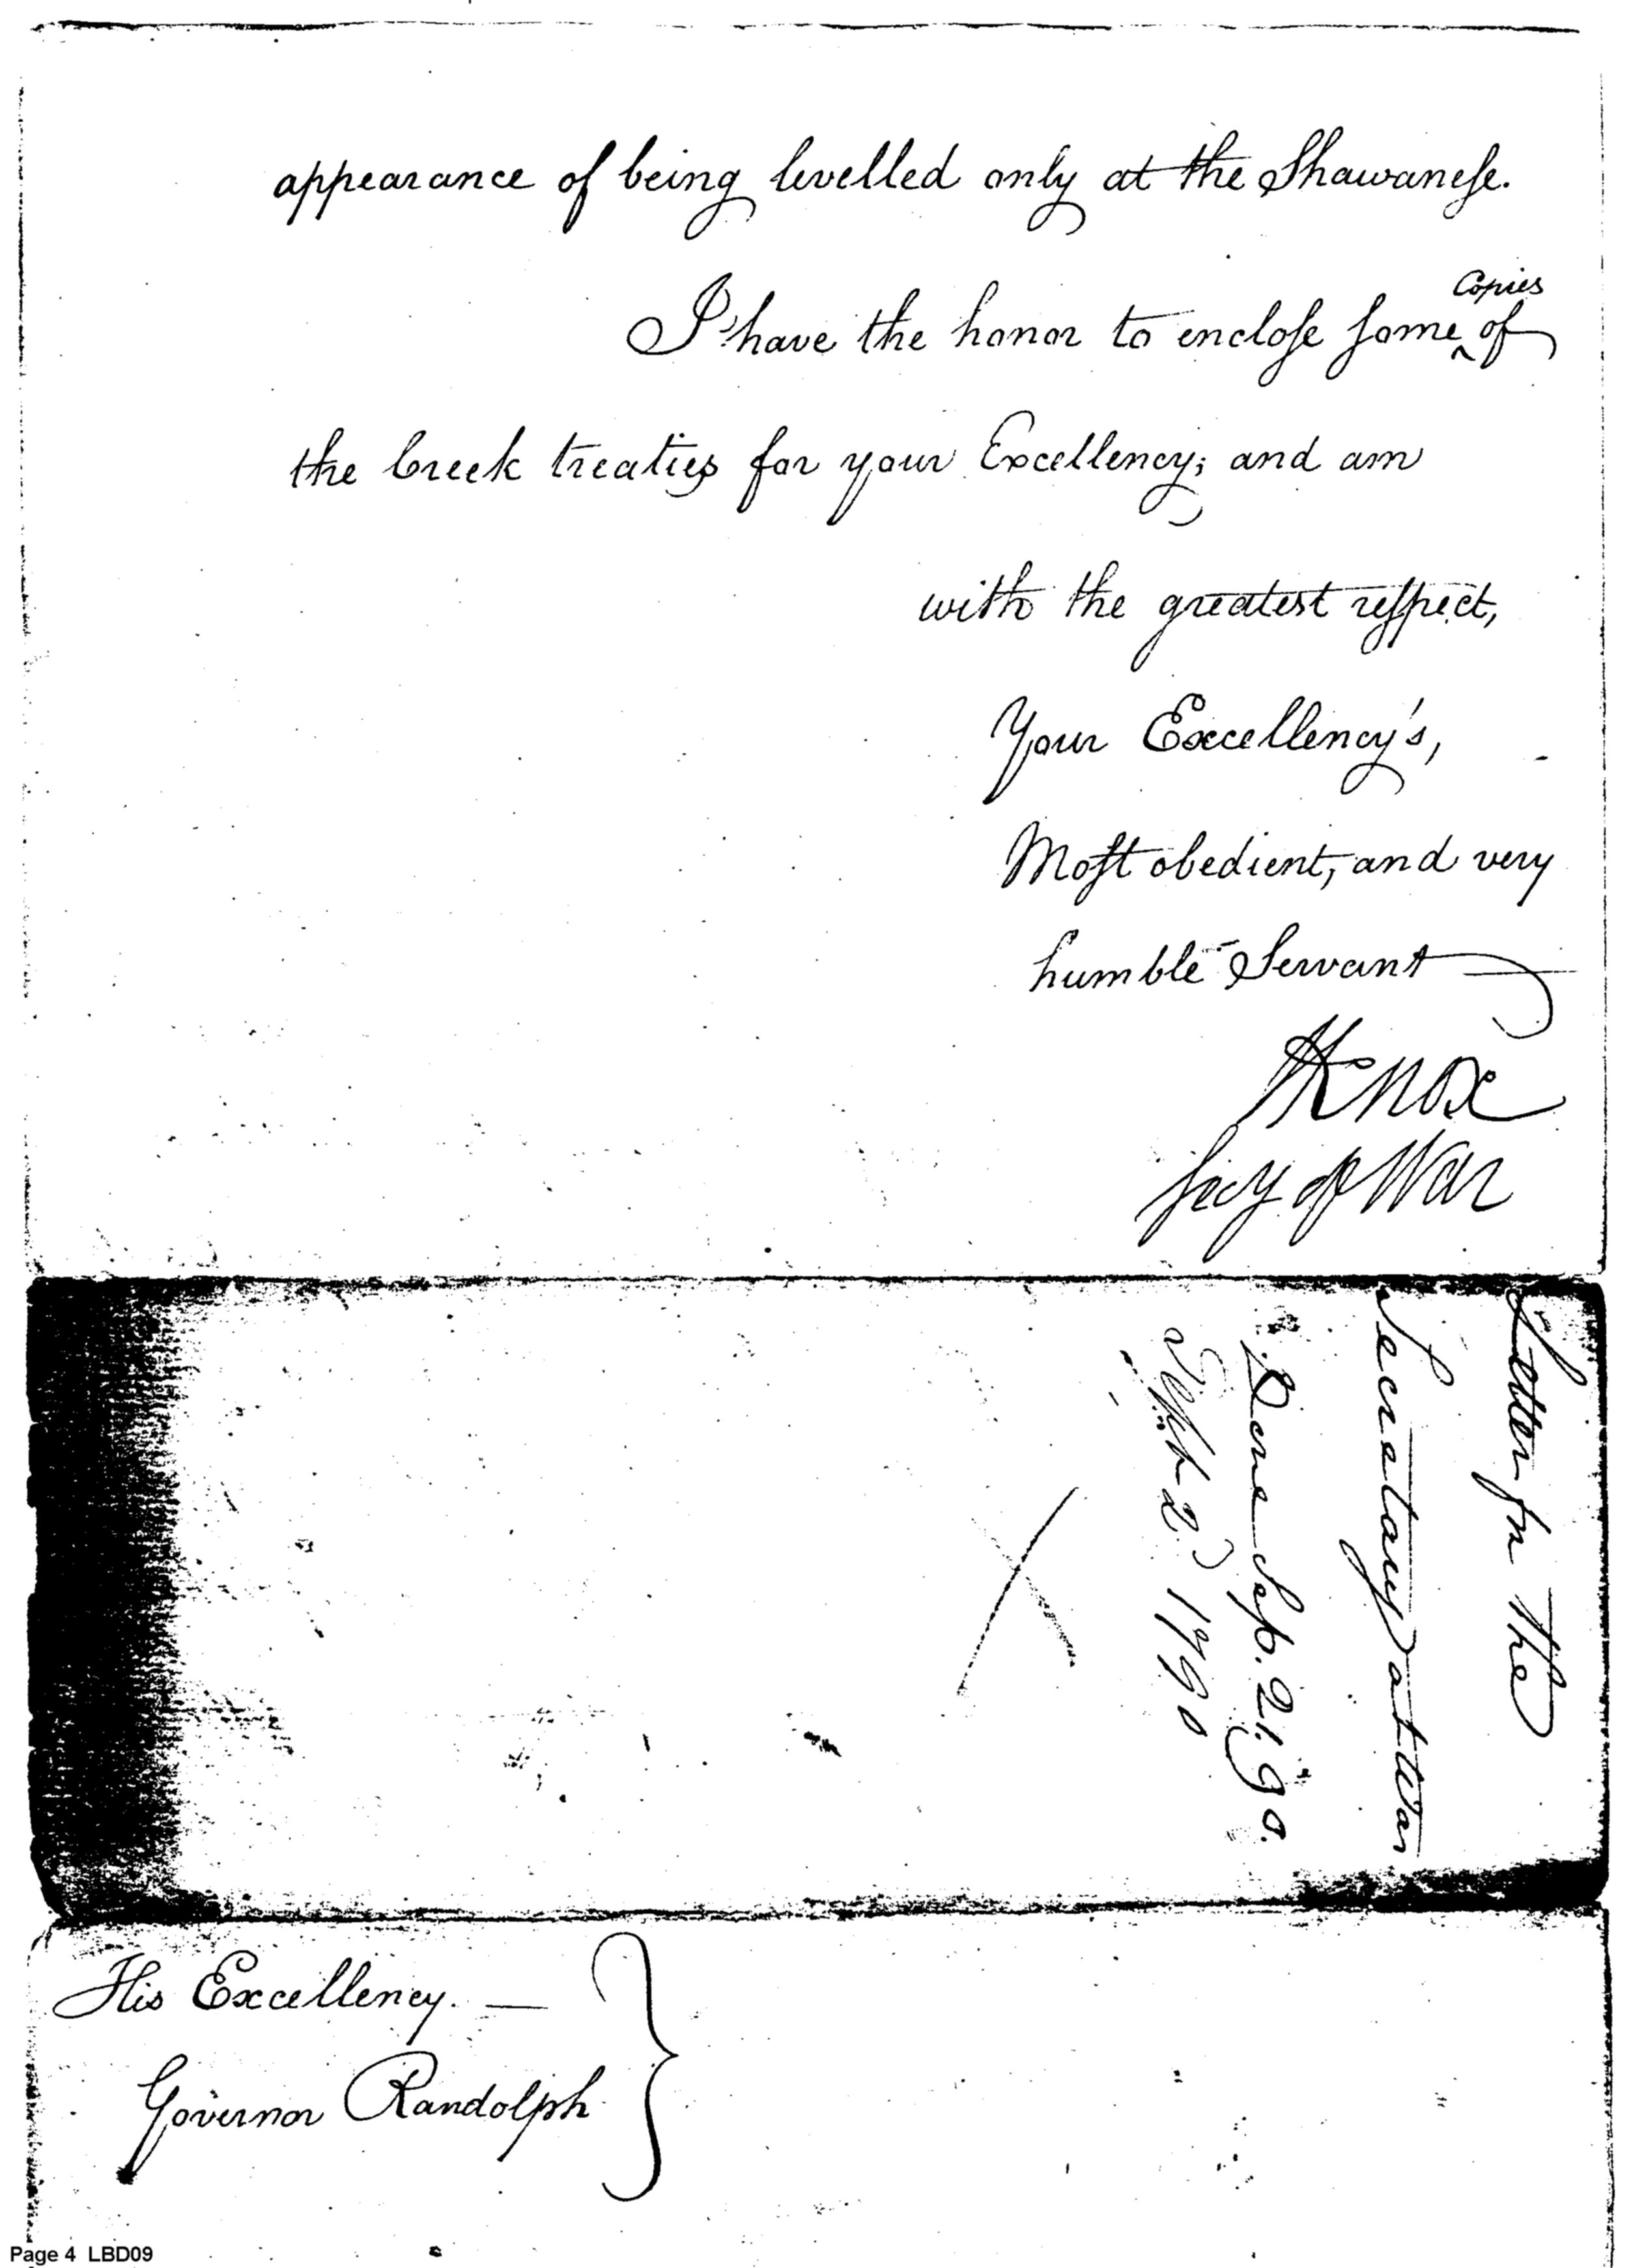 appearance of being levelled only at the Shawanese.
Copies
I have the honor to enclose some ^ of
the Creek treaties for your Excellency; and am
with the greatest respect,
Your Excellency's,
Most obedient, and very
humble Servant
HKnox
Secy of War
Letter fm The
Secretary at War
Sep. 21. 90.
Sept 2 1790
His Excellency. —
Governor Randolph
Page 4 LBD09